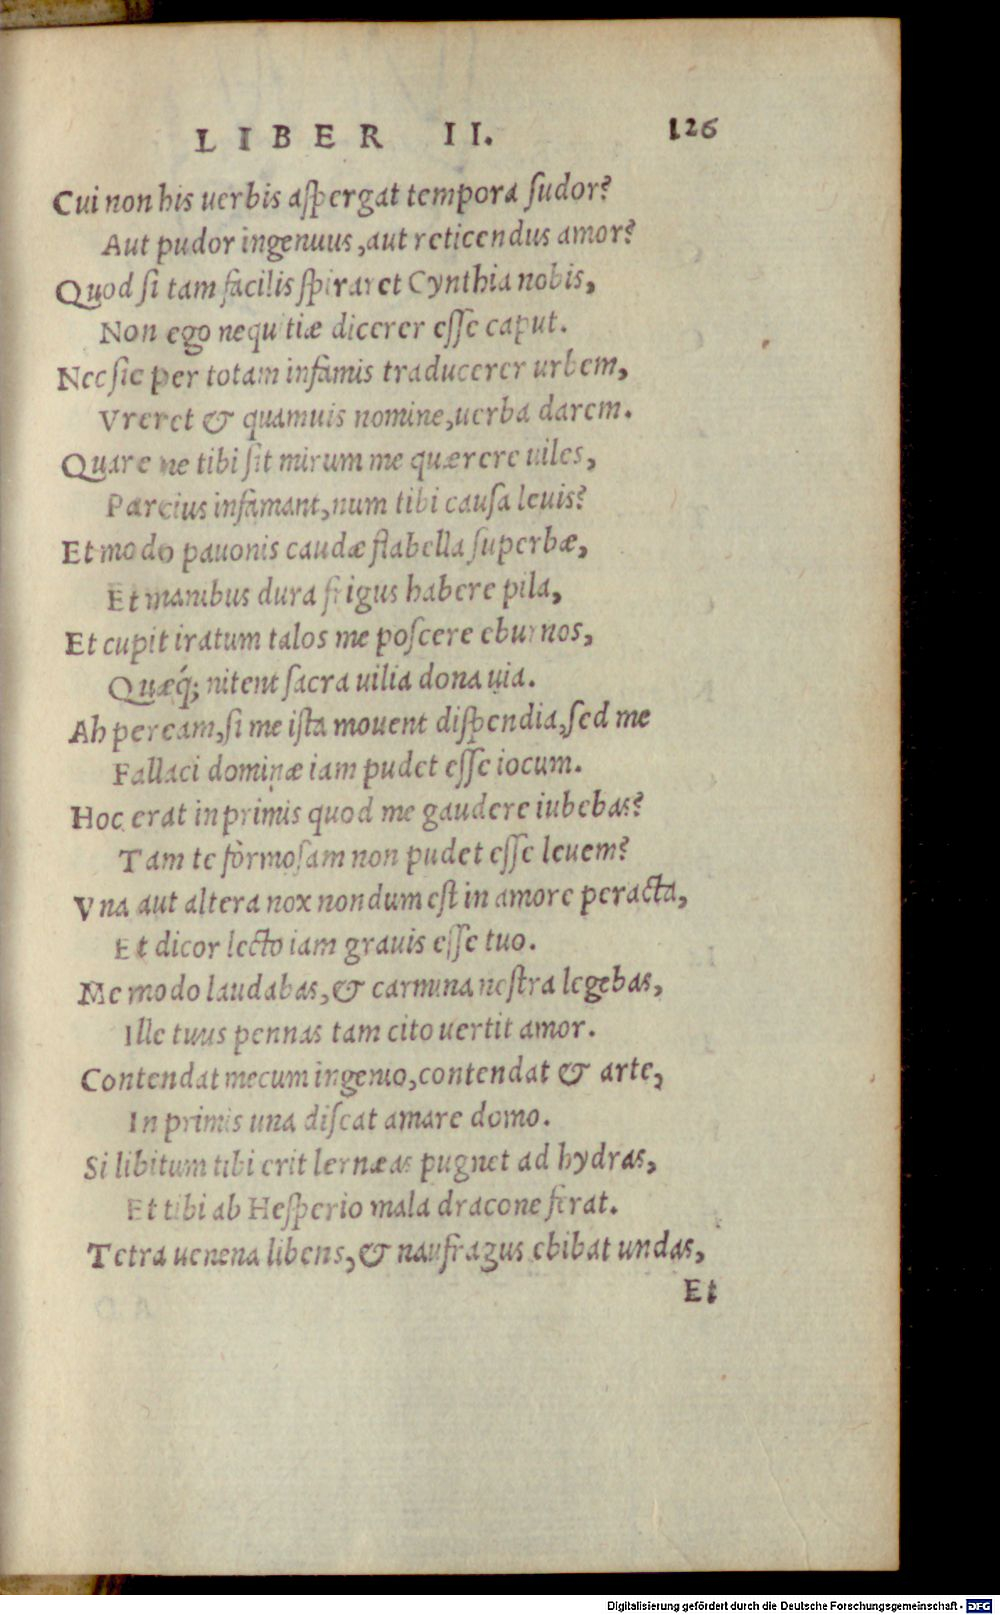 LIBER II. 126
Cui non his uerbis aſpergat tempora ſudor?
Aut pudor ingenuus, aut reticendus amor?
Quod ſi tam facilis ſpiraret Cynthia nobis,
Non ego nequitiæ dicerer eſſe caput.
Nec ſic per totam infamis traducerer urbem,
Vreret & quamuis nomine, uerba darem.
Quare ne tibi ſit mirum me quærere uiles,
Parcius infamant, num tibi cauſa leuis?
Et modo pauonis caudæ flabella ſuperbæ,
Et manibus dura frigus habere pila,
Et cupit iratum talos me poſcere eburnos,
Quæq́; nitent ſacra uilia dona uia.
Ah peream, ſi me iſta mouent diſpendia, ſed me
Fallaci dominæ iam pudet eſſe iocum.
Hoc erat in primis quod me gaudere iubebas?
Tam te formoſam non pudet eſſe leuem?
Vna aut altera nox nondum eſt in amore peracta,
Et dicor lecto iam grauis eſſe tuo.
Me modo laudabas, & carmina noſtra legebas,
Ille tuus pennas tam cito uertit amor.
Contendat mecum ingenio, contendat & arte,
In primis una diſcat amare domo.
Si libitum tibi erit lernæas pugnet ad hydras,
Et tibi ab Heſperio mala dracone ferat.
Tetra uenena libens, & naufragus ebibat undas,
Et
Digitalisierung gefördert durch die Deutsche Forschungsgemeinschaft - DFG